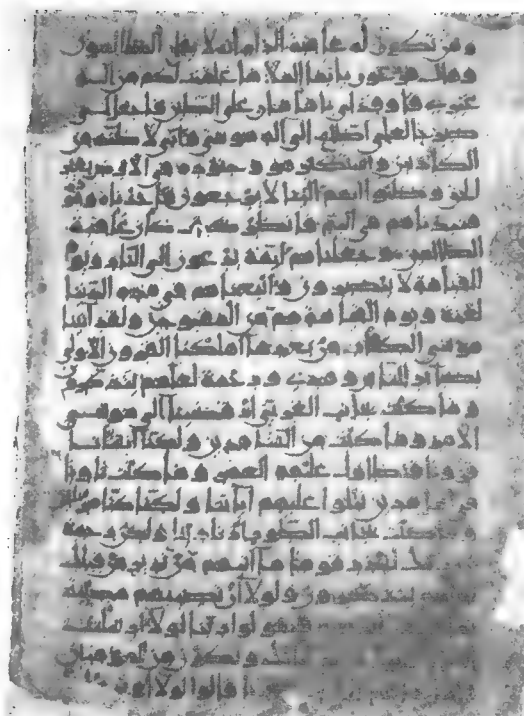 ومن تكون له عاقبة الدار انه لا يفلح الظالمون
وقال فرعون يا ايها الملا ما علمت لكم من اله
غيري فاوقد لي يا هامان على الطين فاجعل لي
صرحا لعلي اطلع الى اله موسى واني لاظنه من
الكاذبين واستكبر هو وجنوده في الارض بغير
الحق وظنوا انهم الينا لا يرجعون فاخذناه وجنوده
فنبذناهم في اليم فانظر كيف كان عاقبة
الظالمين وجعلناهم ايمة يدعون الى النار ويوم
القيامة لا ينصرون واتبعناهم في هذه الدنيا
لعنة ويوم القيامة هم من المقبوحين ولقد اتينا
موسى الكتاب من بعد ما اهلكنا القرون الاولى
بصاير للناس وهدى ورحمة لعلهم يتذكرون
وما كنت بجانب الغربي اذ قضينا الى موسى
الامر وما كنت من الشاهدين ولكنا انشانا
قرونا فتطاول عليهم العمر وما كنت ثاويا
في اهل مدين تتلوا عليهم اياتنا ولكنا كنا مرسلين
وما كنت بجانب الطور اذ نادينا ولكن رحمة
لتنذر قوما ما اتيهم من نذير من قبلك
لعلهم يتذكرون ولولا ان تصيبهم مصيبة
فيقولوا ربنا لولا ارسلت
اياتك ونكون من المومنين
قالوا لولا اوتي